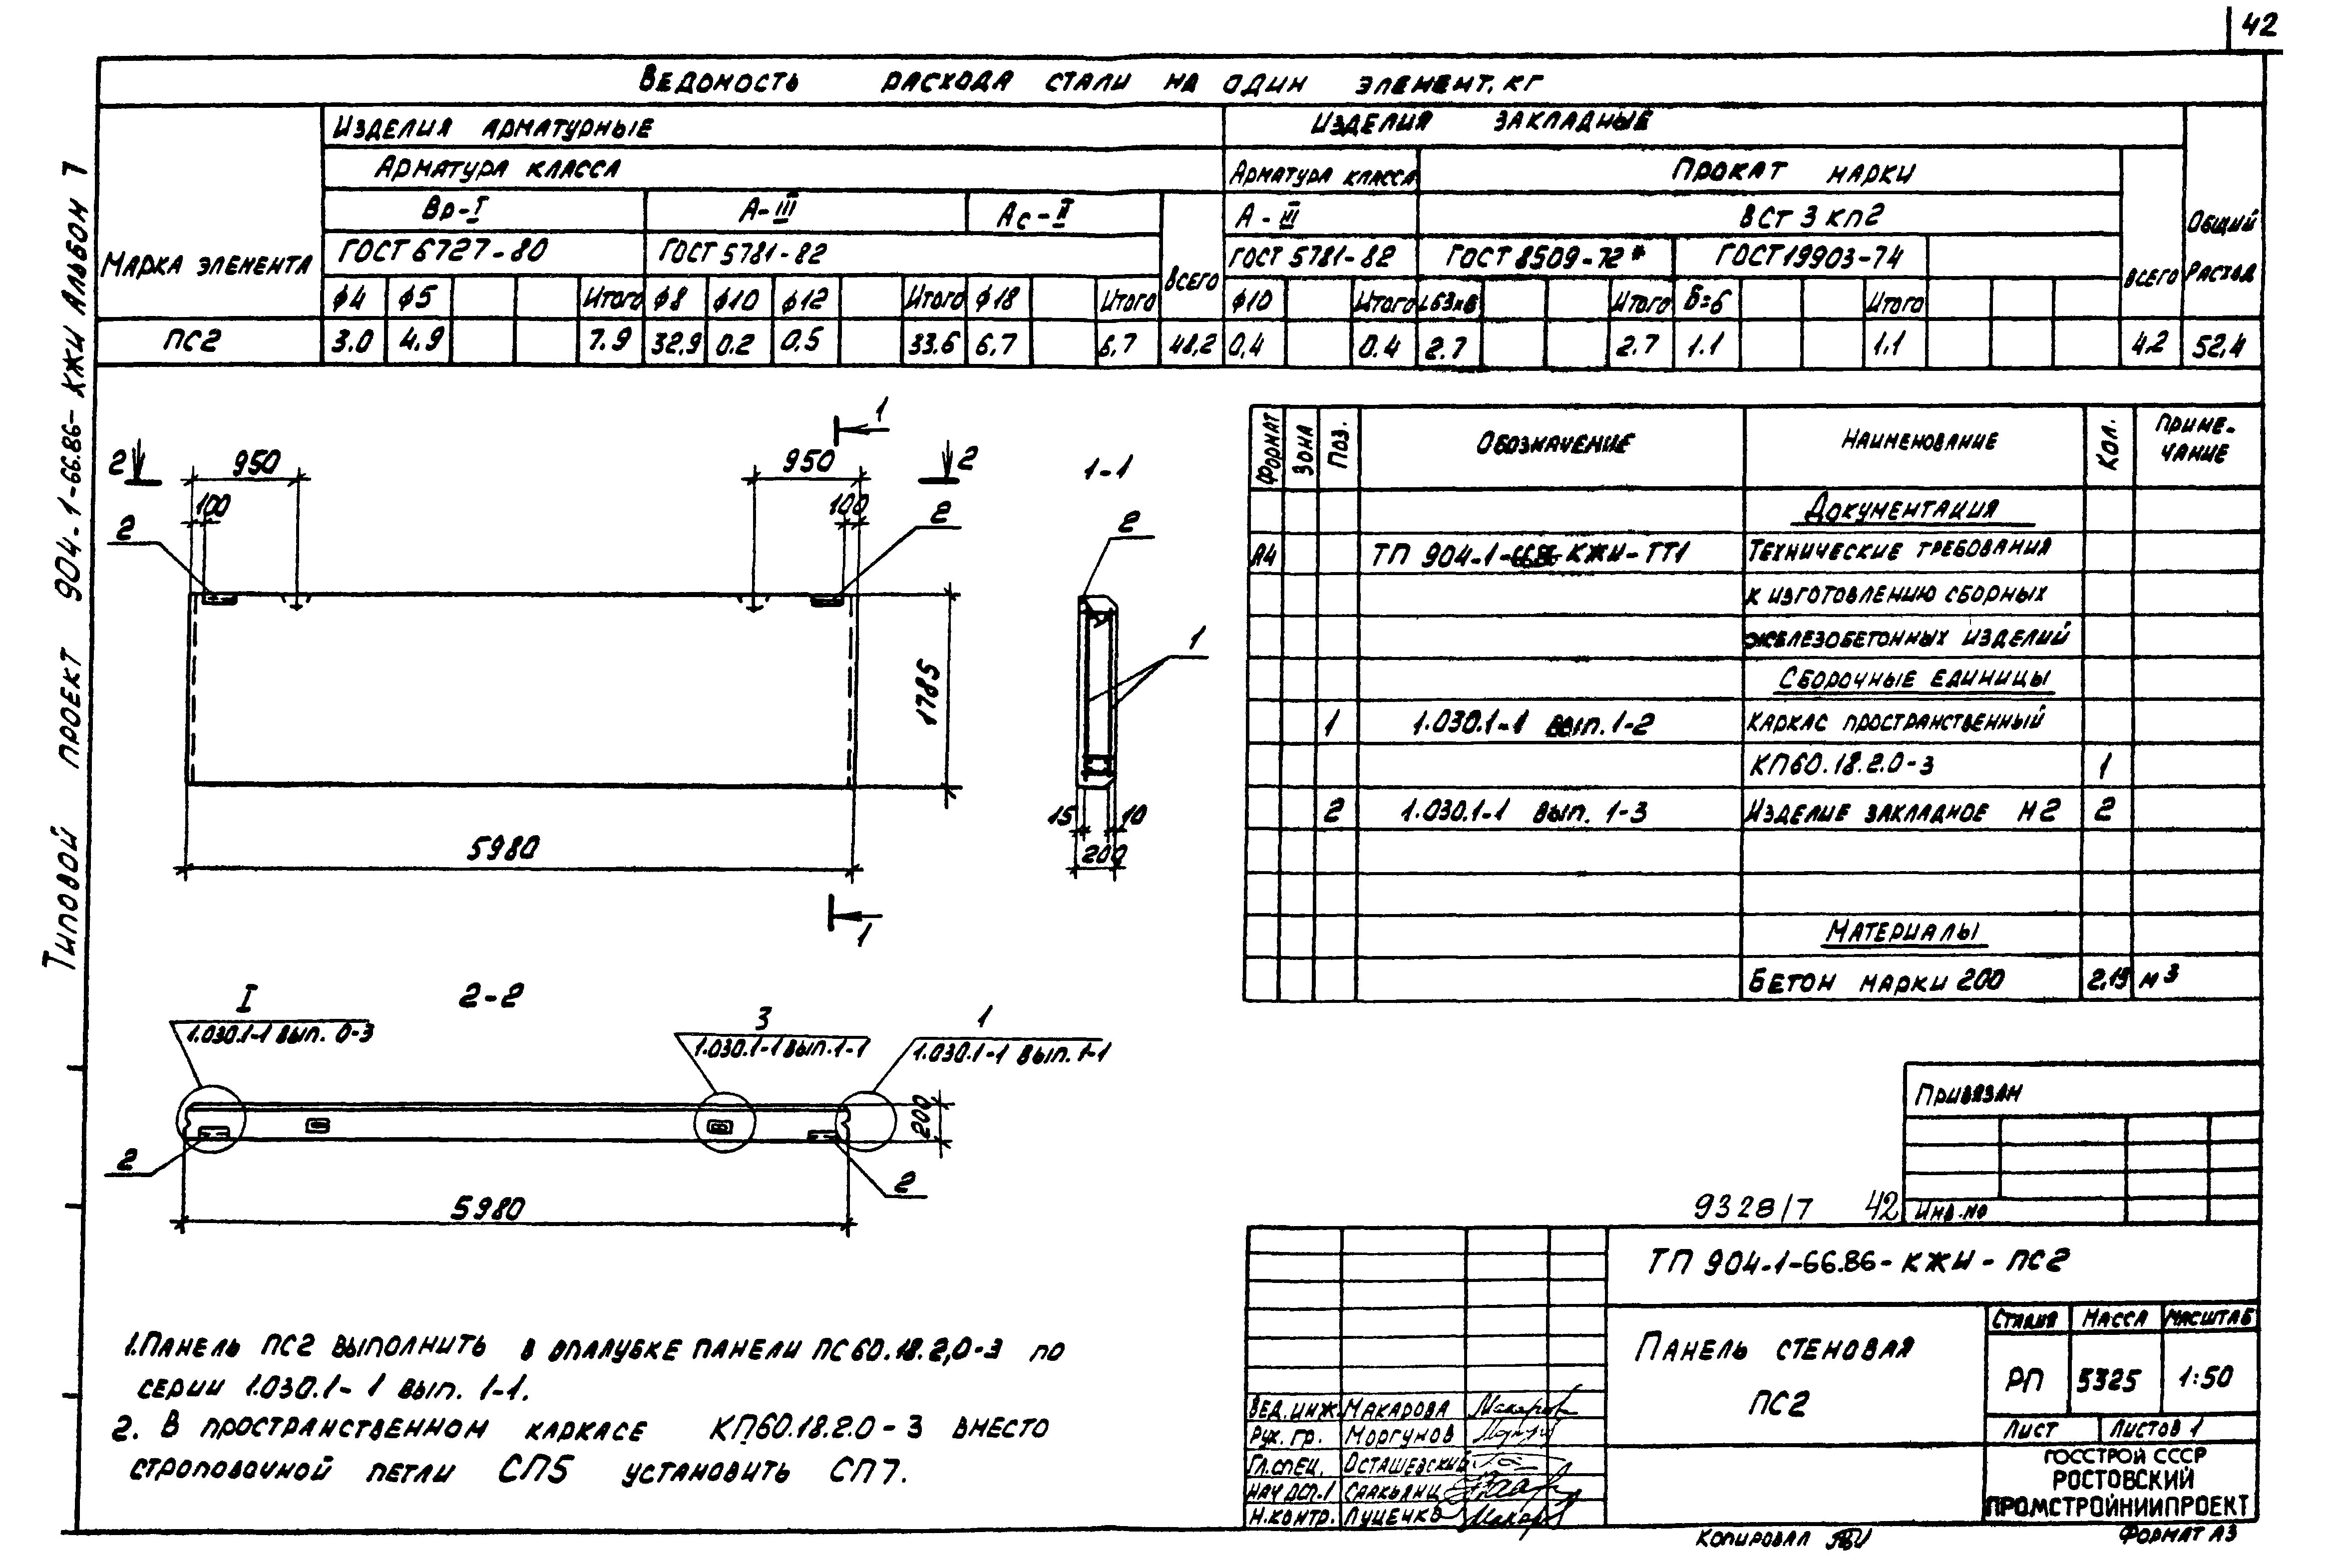 42
Ведомость расхода стали на один элемент, кг
Марка элемента
Изделия арматурные
Изделия закладные
Общий расход
Арматура класса
Арматура класса
Прокат марки
Вр-I
А-III
Ас-II
Всего
А-III
ВСт 3 кп2
Всего
ГОСТ 6727-80
ГОСТ 5781-82
ГОСТ 5781-82
ГОСТ 8509-72*
ГОСТ 19903-74
ф4 ф5 Итого ф8 ф10 ф12 Итого ф18 Итого ф10 Итого L63х6 Итого δ=6 Итого
ПС2 3.0 4.9 7.9 32,9 0.2 0,5 33.6 6,7 6,7 48,2 0,4 0.4 2.7 2.7 1.1 1.1 4,2 52,4
Типовой проект 904-1-66.86-КЖИ Альбом 7
1
2
950
950
2
100
100
2
2
1785
5980
1
1-1
2
1
15
10
200
2-2
I
1.030.1-1 вып. 0-3
3
1.030.1-1 вып. 1-1
1
1.030.1-1 вып. 1-1
200
2
2
5980
Формат Зона Поз. Обозначение Наименование Кол. Приме-
чание
Документация
А4 ТП 904-1-66.86-КЖИ-ТТ1 Технические требования
к изготовлению сборных
железобетонных изделий
Сборочные единицы
1 1.030.1-1 вып. 1-2 каркас пространственный
КП60.18.2.0-3 1
2 1.030.1-1 вып. 1-3 Изделие закладное М2 2
Материалы
Бетон марки 200 2,13 м3
Привязан
Инв.No
9328/7 42
1. Панель ПС2 выполнить в опалубке панели ПС60.18.2,0-3 по
серии 1.030.1-1 вып. 1-1.
2. В пространственном каркасе КП60.18.2.0-3 вместо
строповочной петли СП5 установить СП7.
ТП 904-1-66.86-КЖИ-ПС2
Панель стеновая
ПС2
Стадия Масса Масштаб
РП 5325 1:50
Лист Листов 1
Вед.инж. Макарова
Рук. гр. Моргунов
Гл.спец. Осташевский
Нач.осп.1 Саакьянц
Н.контр. Луценко
ГОССТРОЙ СССР
РОСТОВСКИЙ
ПРОМСТРОЙНИИПРОЕКТ
Копировал
Формат А3